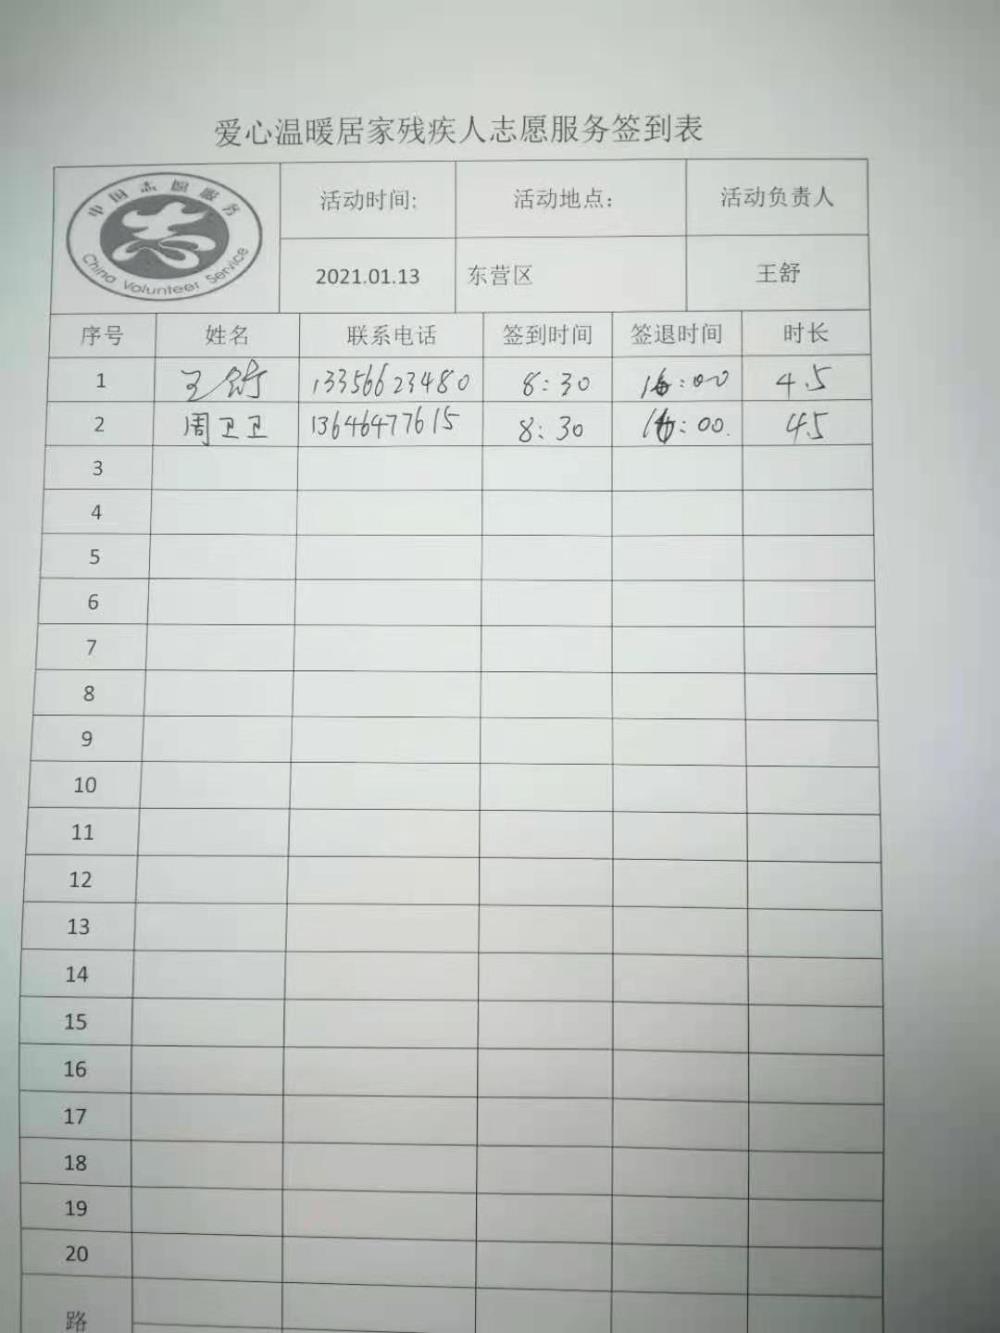 爱心温暖居家残疾人志愿服务签到表
中国志愿服务
China Volunteer Service
活动时间: 活动地点: 活动负责人
2021.01.13 东营区 王舒
序号 姓名 联系电话 签到时间 签退时间 时长
1 王舒 13356623480 8:30 16:00 4.5
2 周卫卫 13646477615 8:30 16:00. 45
3
4
5
6
7
8
9
10
11
12
13
14
15
16
17
18
19
20
路